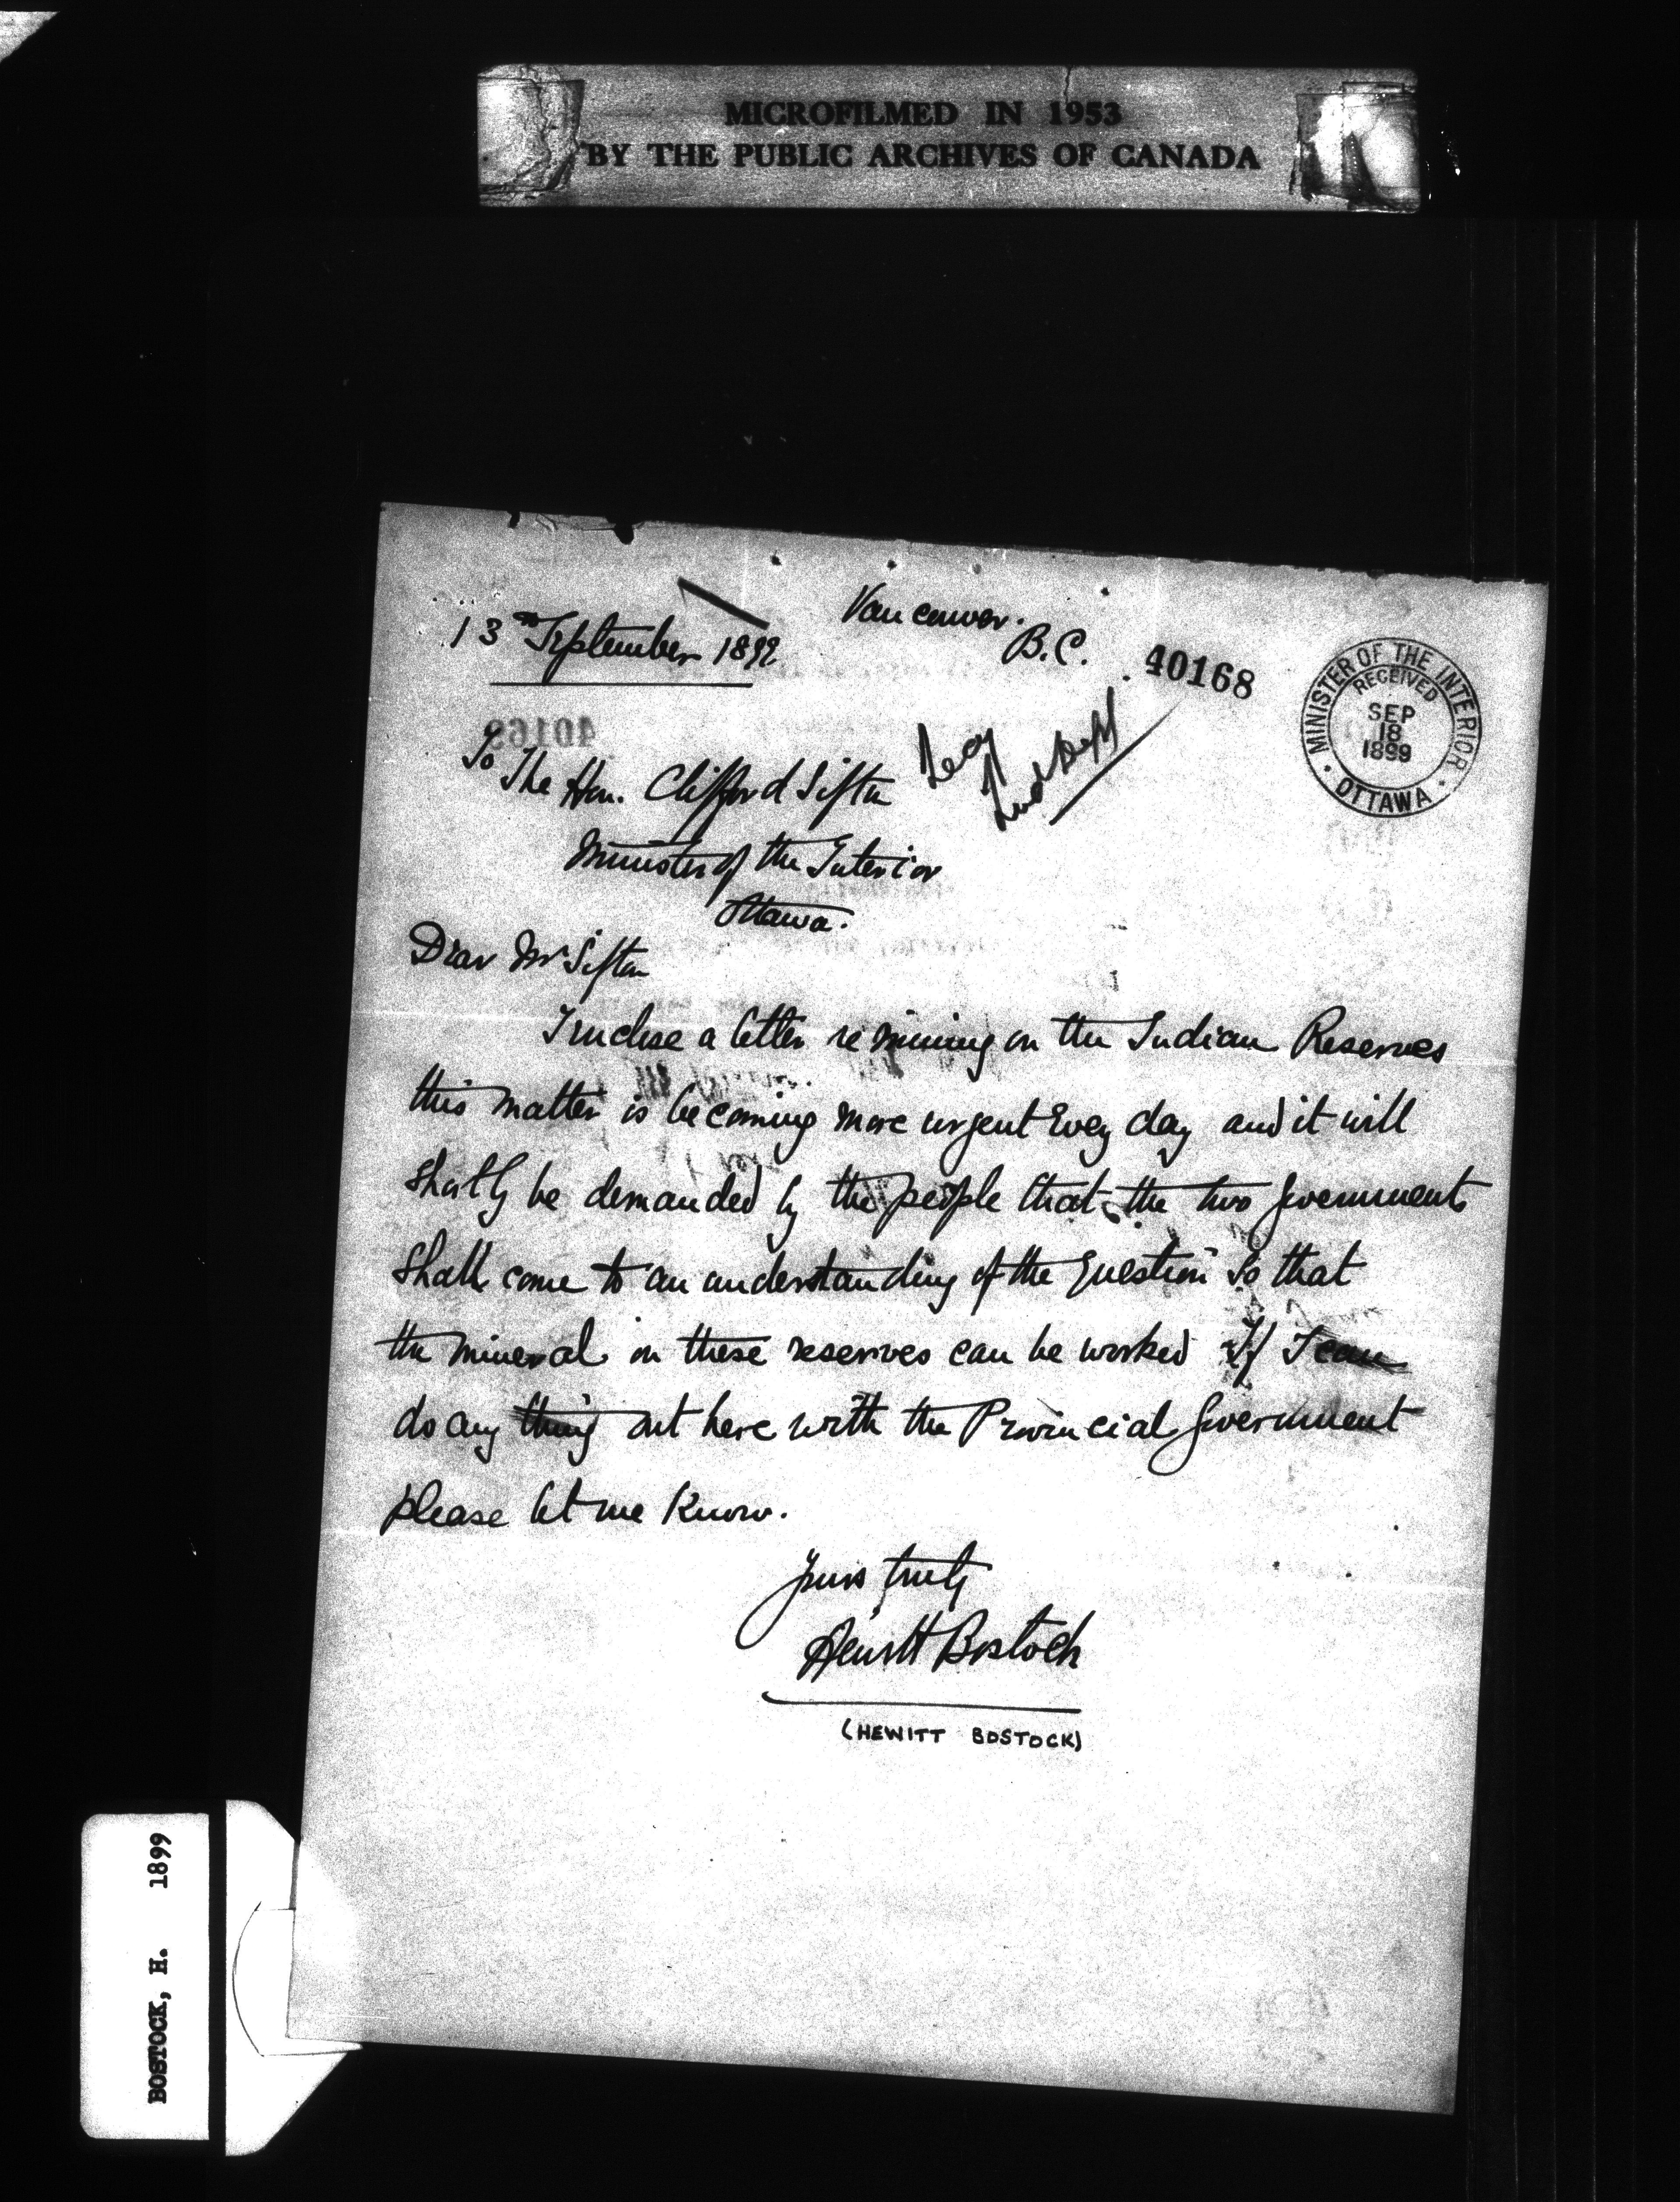 MICROFILMED IN 1953
BY THE PUBLIC ARCHIVES OF CANADA
Vancouver.
B.C.
13th September 1899
40168
MINISTER OF THE INTERIOR
RECEIVED
SEP
18
1899
OTTAWA
40169
Dept
To The Hon. Clifford Sifton
Minister of the Interior
Ottawa.
Dear Mr Sifton
I enclose a letter re mining on the Indian Reserves
this matter is becoming more urgent every day and it will
shortly be demanded by the people that the two governments
shall come to an understanding of the question so that
the mineral on these reserves can be worked If I can
do any thing out here with the Provincial Government
please let me know.
Yours truly
Hewitt Bostock
(HEWITT BOSTOCK)
BOSTOCK, H. 1899